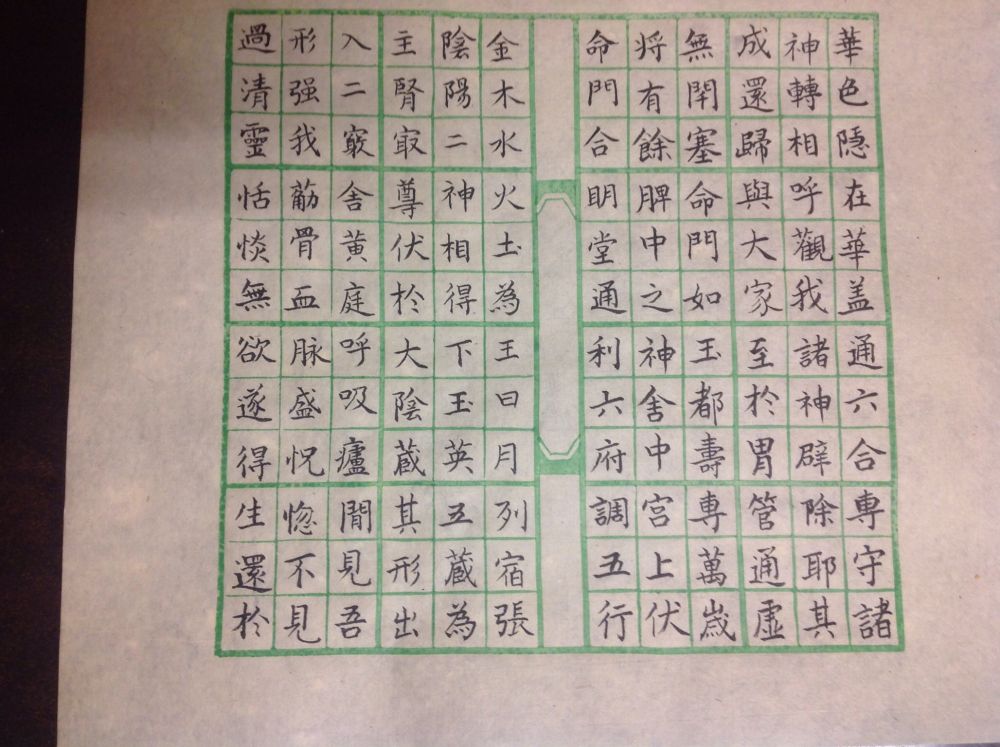 華色隱在華盖通六合専守諸
神轉相呼觀我諸神辟除耶其
成還歸與大家至於胃管通虚
無閇塞命門如玉都壽専萬歳
将有餘脾中之神舎中宮上伏
命門合眀堂通利六府調五行
金木水火土為王日月列宿張
陰陽二神相得下玉英五蔵為
主腎㝡尊伏於大陰蔵其形出
入二竅舎黄庭呼吸廬間見吾
形强我筋骨血脉盛怳惚不見
過清靈恬惔無欲遂得生還於